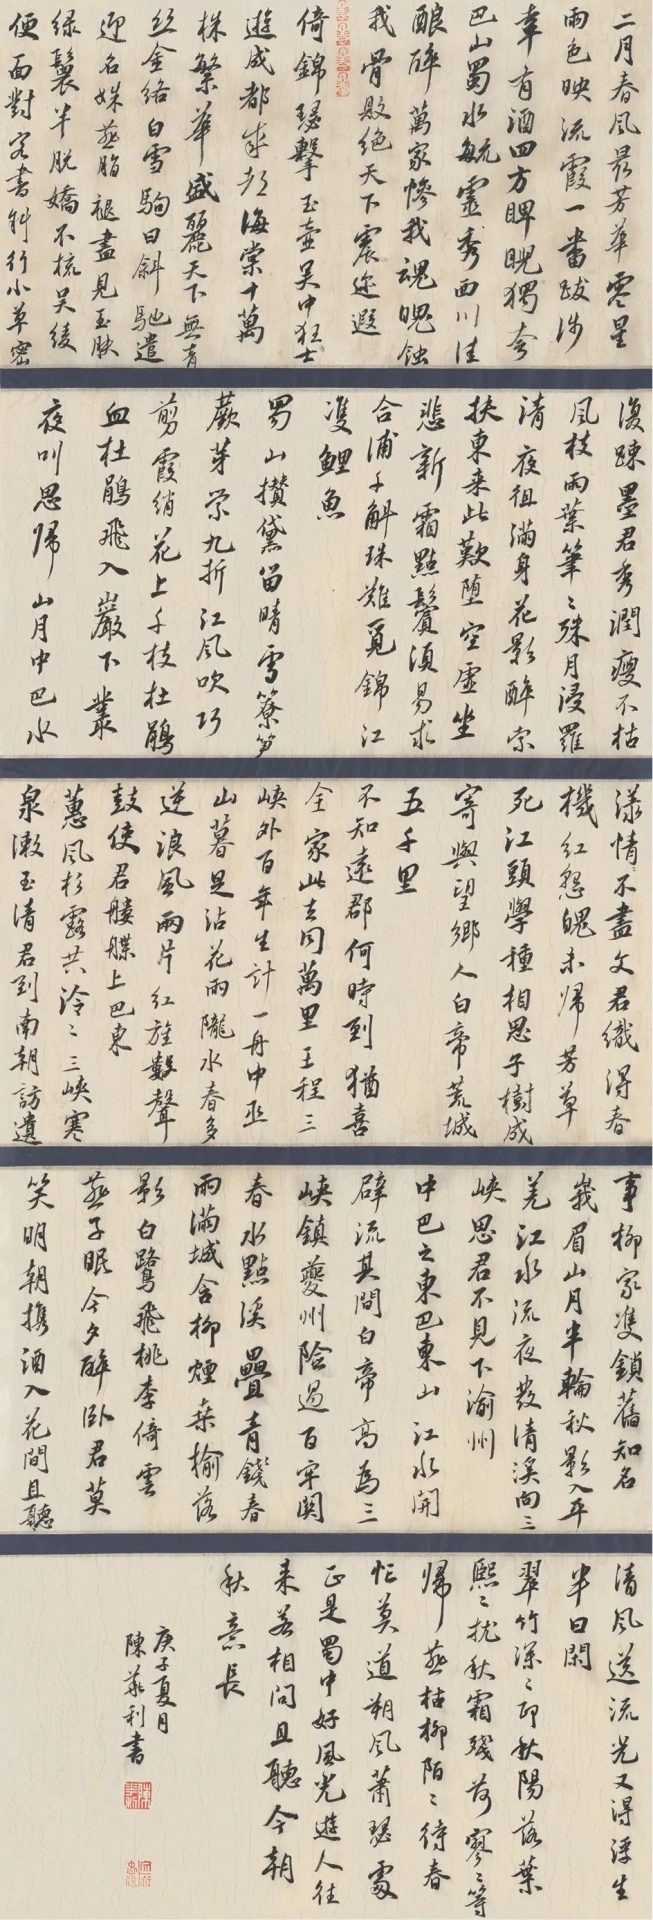 二月春風最芳華零星
雨色映流霞一番跋涉
幸有酒四方睥睨獨夸
巴山蜀水毓靈秀西川佳
釀醉萬家慘我魂魄蝕
我骨敗絕天下震迩遐
倚錦瑟擊玉壺吴中狂士
遊成都成都海棠十萬
株繁華盛麗天下無青
絲金絡白雪駒日斜馳遣
迎名姝燕脂褪盡見玉肤
緑鬟半脱嬌不梳吴綾
便面對客書斜行小草密
復疎墨君秀潤瘦不枯
風枝雨葉筆々殊月浸羅
清夜徂滿身花影醉索
扶東来此歎墮空虛坐
悲新霜點鬢須易求
合浦千斛珠難覓錦江
雙鯉魚
蜀山攢黛留晴雪簝笋
蕨芽縈九折江風吹巧
剪霞绡花上千枝杜鵑
血杜鵑飛入巖下叢
夜叫思歸山月中巴水
漾情不盡文君織得春
機红怨魄未歸芳草
死江頭學種相思子樹成
寄與望鄉人白帝荒城
五千里
不知遠郡何時到猶喜
全家此去同萬里王程三
峽外百年生計一舟中巫
山暮足沾花雨隴水春多
逆浪風兩片红旌數聲
鼓使君艛艓上巴東
蕙風杉露共泠々三峽寒
泉漱玉清君到南朝訪遺
事柳家雙鎖舊知名
峩眉山月半輪秋影入平
羌江水流夜發清溪向三
峽思君不見下渝州
中巴之東巴東山江水開
闢流其間白帝高為三
峽鎮夔州險過百牢關
春水點溪疊青錢春
雨滿城含柳煙桑榆落
影白鷺飛桃李倚雲
燕子眠今夕醉卧君莫
笑明朝攜酒入花間且聽
清風送流光又得浮生
半日閑
翠竹深々卽秋陽落葉
熙々扰秋霜殘荷寥々等
歸燕枯柳陌々待春
忙莫道朔風蕭瑟處
正是蜀中好風光遊人往
来若相問且聽今朝
秋意長
庚子夏月
陳利書